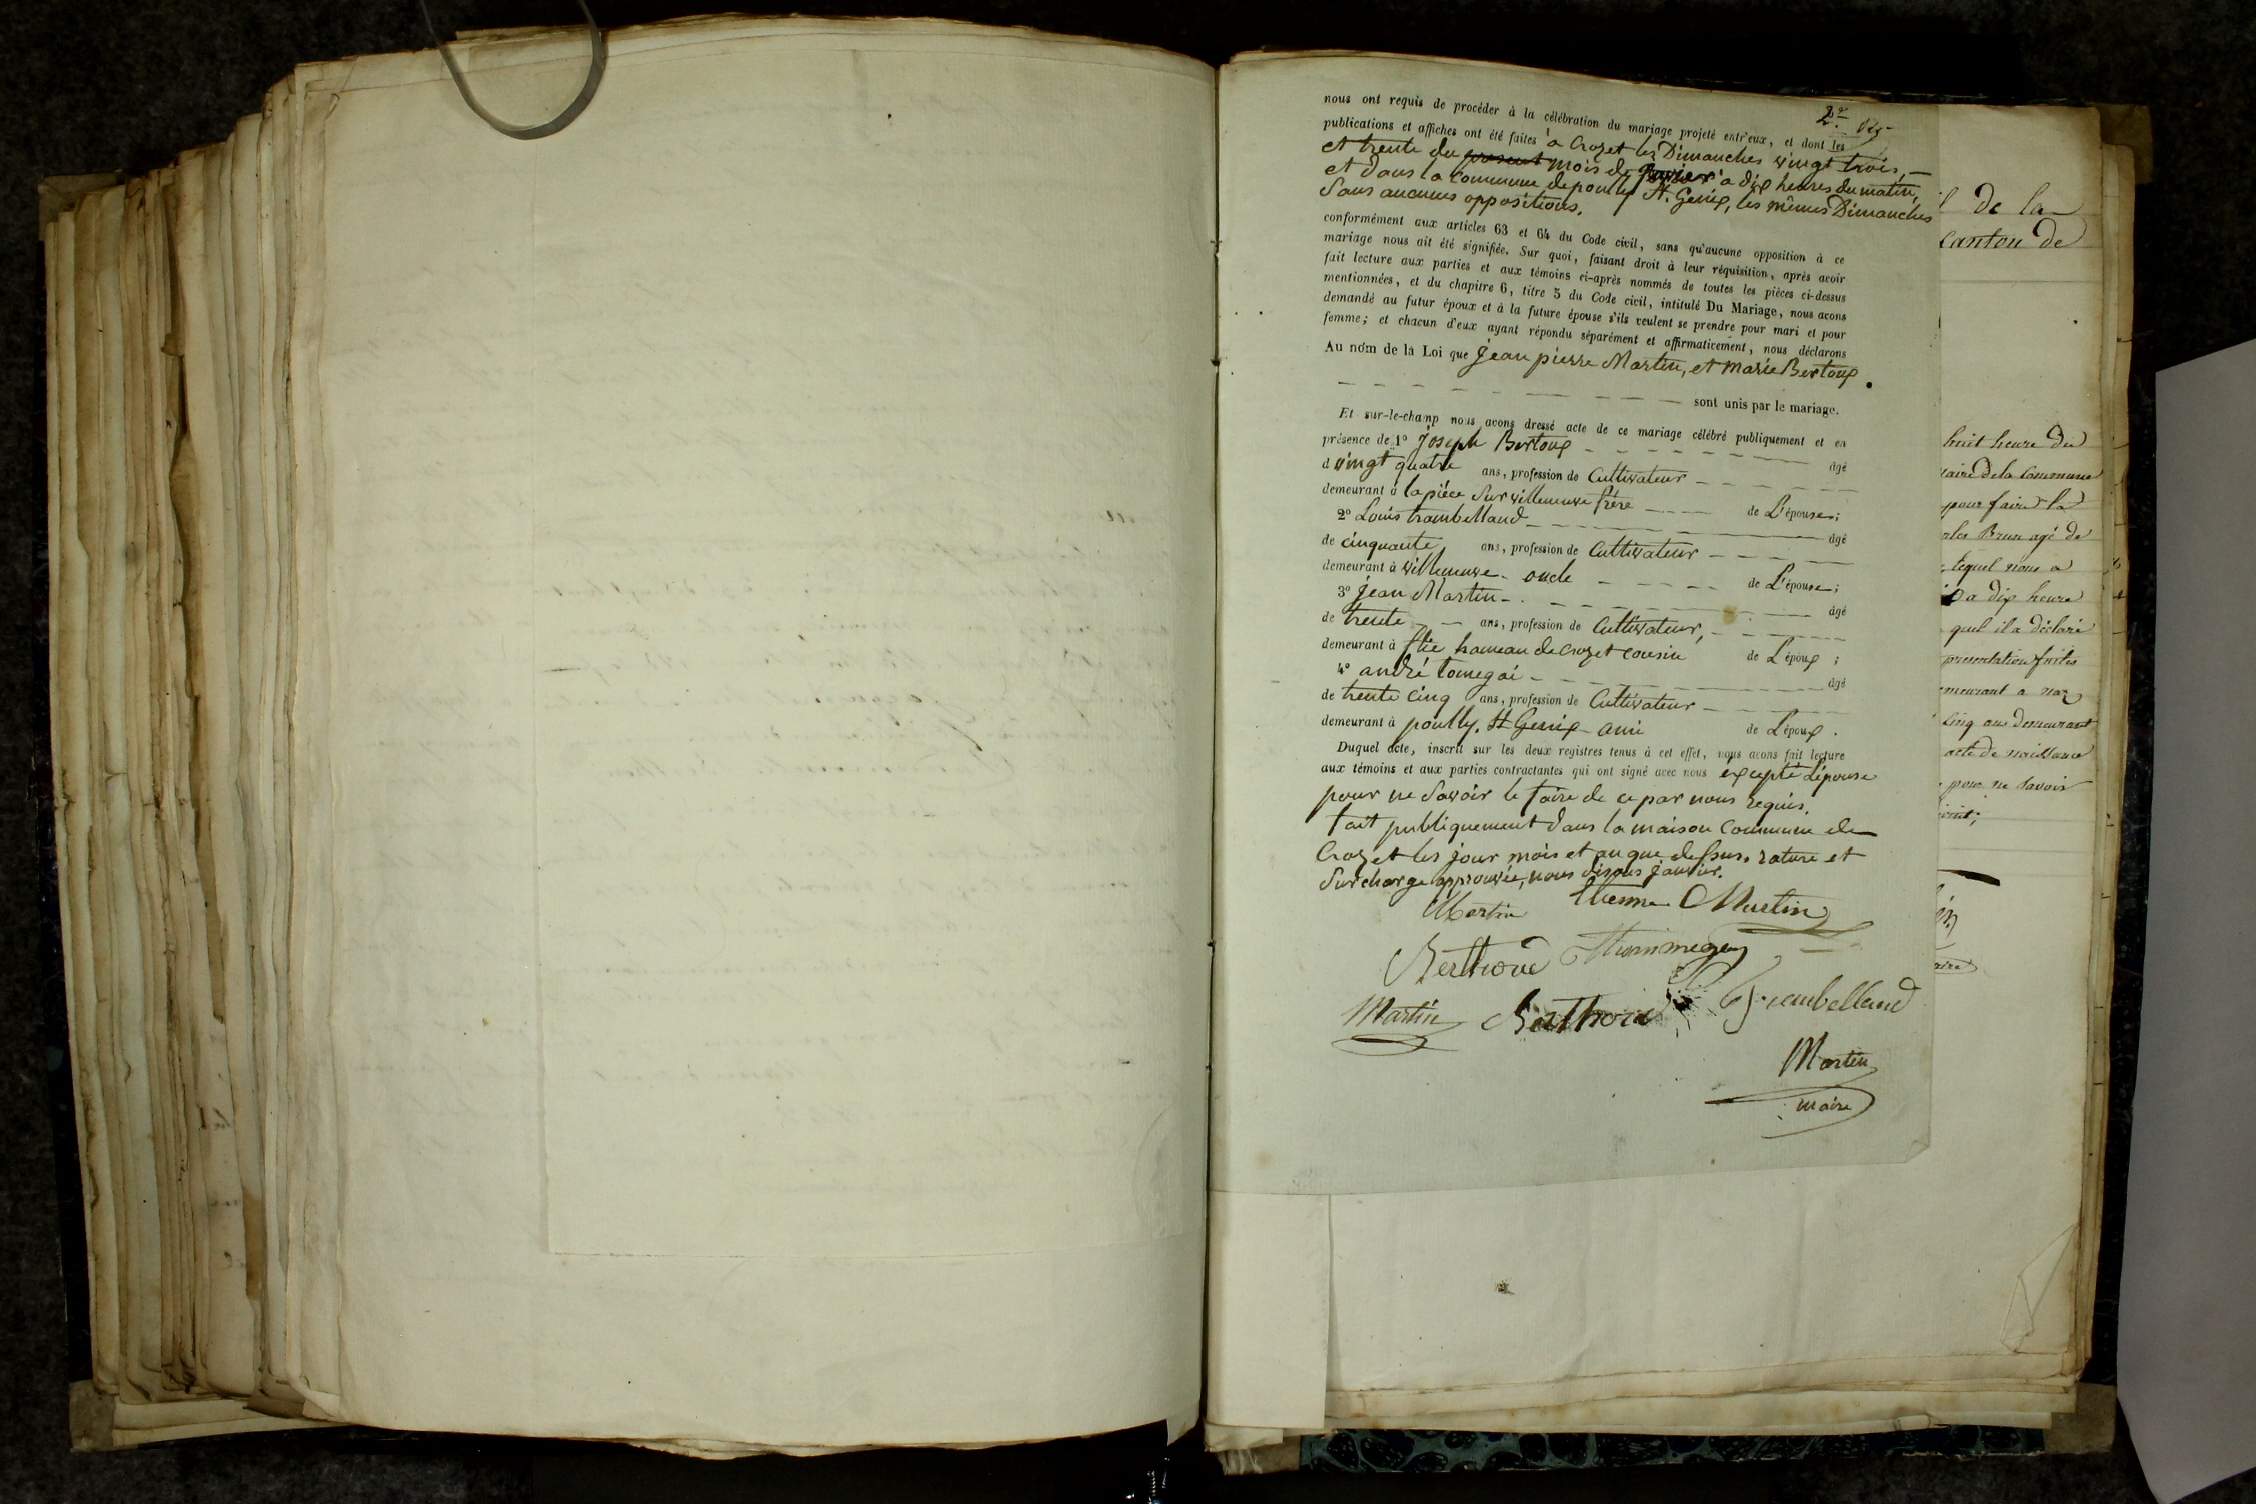 2e
nous ont requis de procéder à la célébration du mariage projeté entr'eux, et dont les
publications et affiches ont été faites à Crozet les Dimanches vingt trois,
et trente du present mois de janvier à dix heures du matin,
et dans la commune de pouilly St. Genix, les mêmes Dimanches
Sans aucunes oppositions.
conformément aux articles 63 et 64 du Code civil, sans qu'aucune opposition à ce
mariage nous ait été signifiée. Sur quoi, faisant droit à leur réquisition, après avoir
fait lecture aux parties et aux témoins ci-après nommés de toutes les pièces ci-dessus
mentionnées, et du chapitre 6, titre 5 du Code civil, intitulé Du Mariage, nous avons
demandé au futur époux et à la future épouse s'ils veulent se prendre pour mari et pour
femme; et chacun d'eux ayant répondu séparément et affirmativement, nous déclarons
Au nom de la Loi que jean pierre Martin, et marie Bertoux.
sont unis par le mariage.
Et sur-le-champ nous avons dressé acte de ce mariage célébré publiquement et en
présence de 1° joseph Bertoux âgé
d vingt quatre ans, profession de Cultivateur
demeurant à la pièce Sur villeneuve frère de L'épouse;
2° Louis trambelland âgé
de cinquante ans, profession de Cultivateur
demeurant à villeneuve oncle de L'épouse;
3° jean Martin âgé
de trente ans, profession de Cultivateur,
demeurant à flie hameau de crozet cousin de L'époux;
4° andré tomegai âgé
de trente cinq ans, profession de Cultivateur
demeurant à pouilly. St Genix ami de L'époux.
Duquel acte, inscrit sur les deux registres tenus à cet effet, nous avons fait lecture
aux témoins et aux parties contractantes qui ont signé avec nous excepté L'épouse
pour ne Savoir le faire de ce par nous requis.
fait publiquement dans la maison Commune de
Crozet les jour mois et an que dessus. rature et
Surcharge approuvée, nous disons janvier.
Martin Etienne Martin
Berthoud Thommegay
Martin Berthoud Trambelland
Martin
maire
de la
canton de
huit heure du
aire de la Commune
pour faire la
Brun agé de
lequel nous a
a dix heure
quel il a déclaré
presentation faites
emeurant a naz
cinq ans demeurant
acte de naissance
pour ne savoir